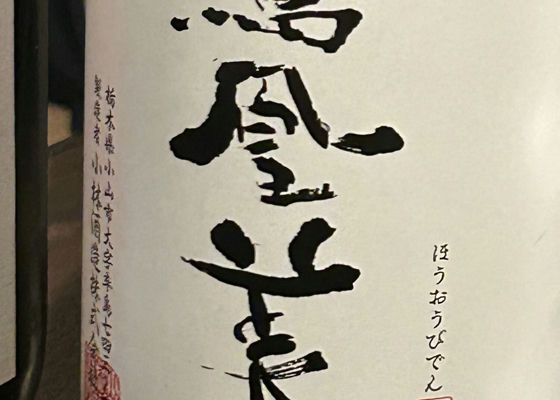 ほうおうびでん
鳳凰美
栃木県小山市大字卒島七百四十三
製造者 小林酒造株式会社